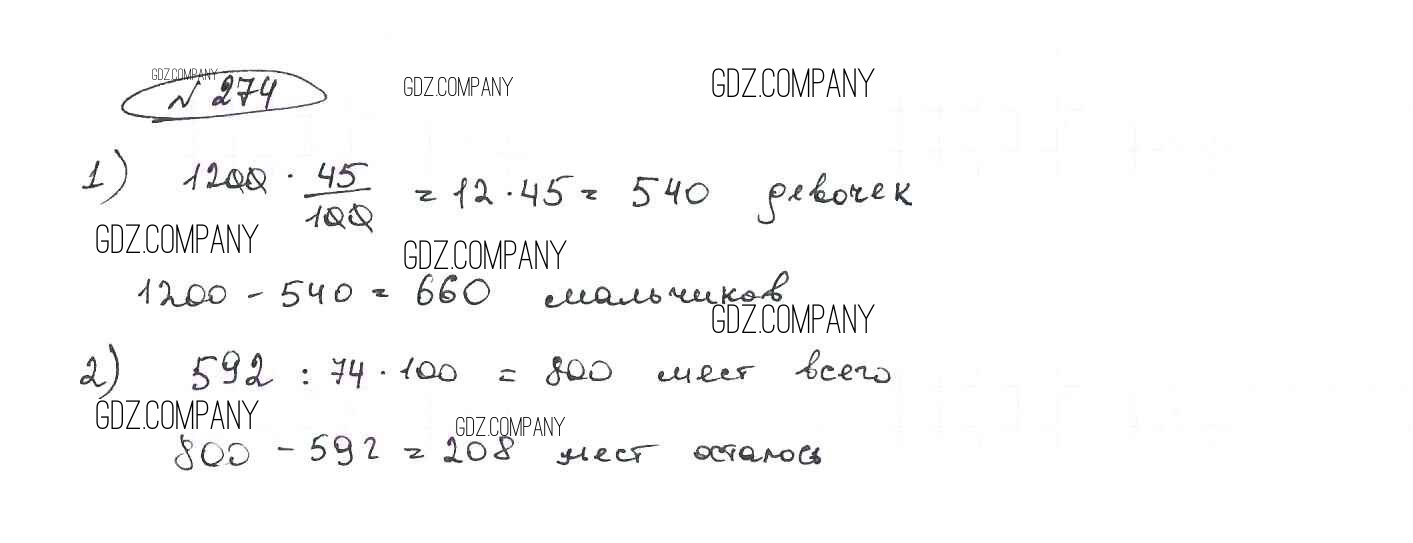 GDZ.COMPANY
№ 274 GDZ.COMPANY GDZ.COMPANY
1) 1200 · 45/100 = 12 · 45 = 540 девочек
GDZ.COMPANY GDZ.COMPANY
1200 - 540 = 660 мальчиков
GDZ.COMPANY
2) 592 : 74 · 100 = 800 мест всего
GDZ.COMPANY GDZ.COMPANY
800 - 592 = 208 мест осталось